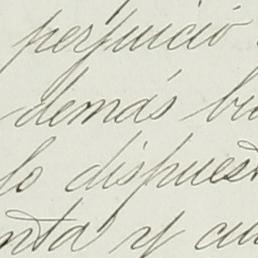 perjuicio
demás bi
lo dispuest
nta y cua